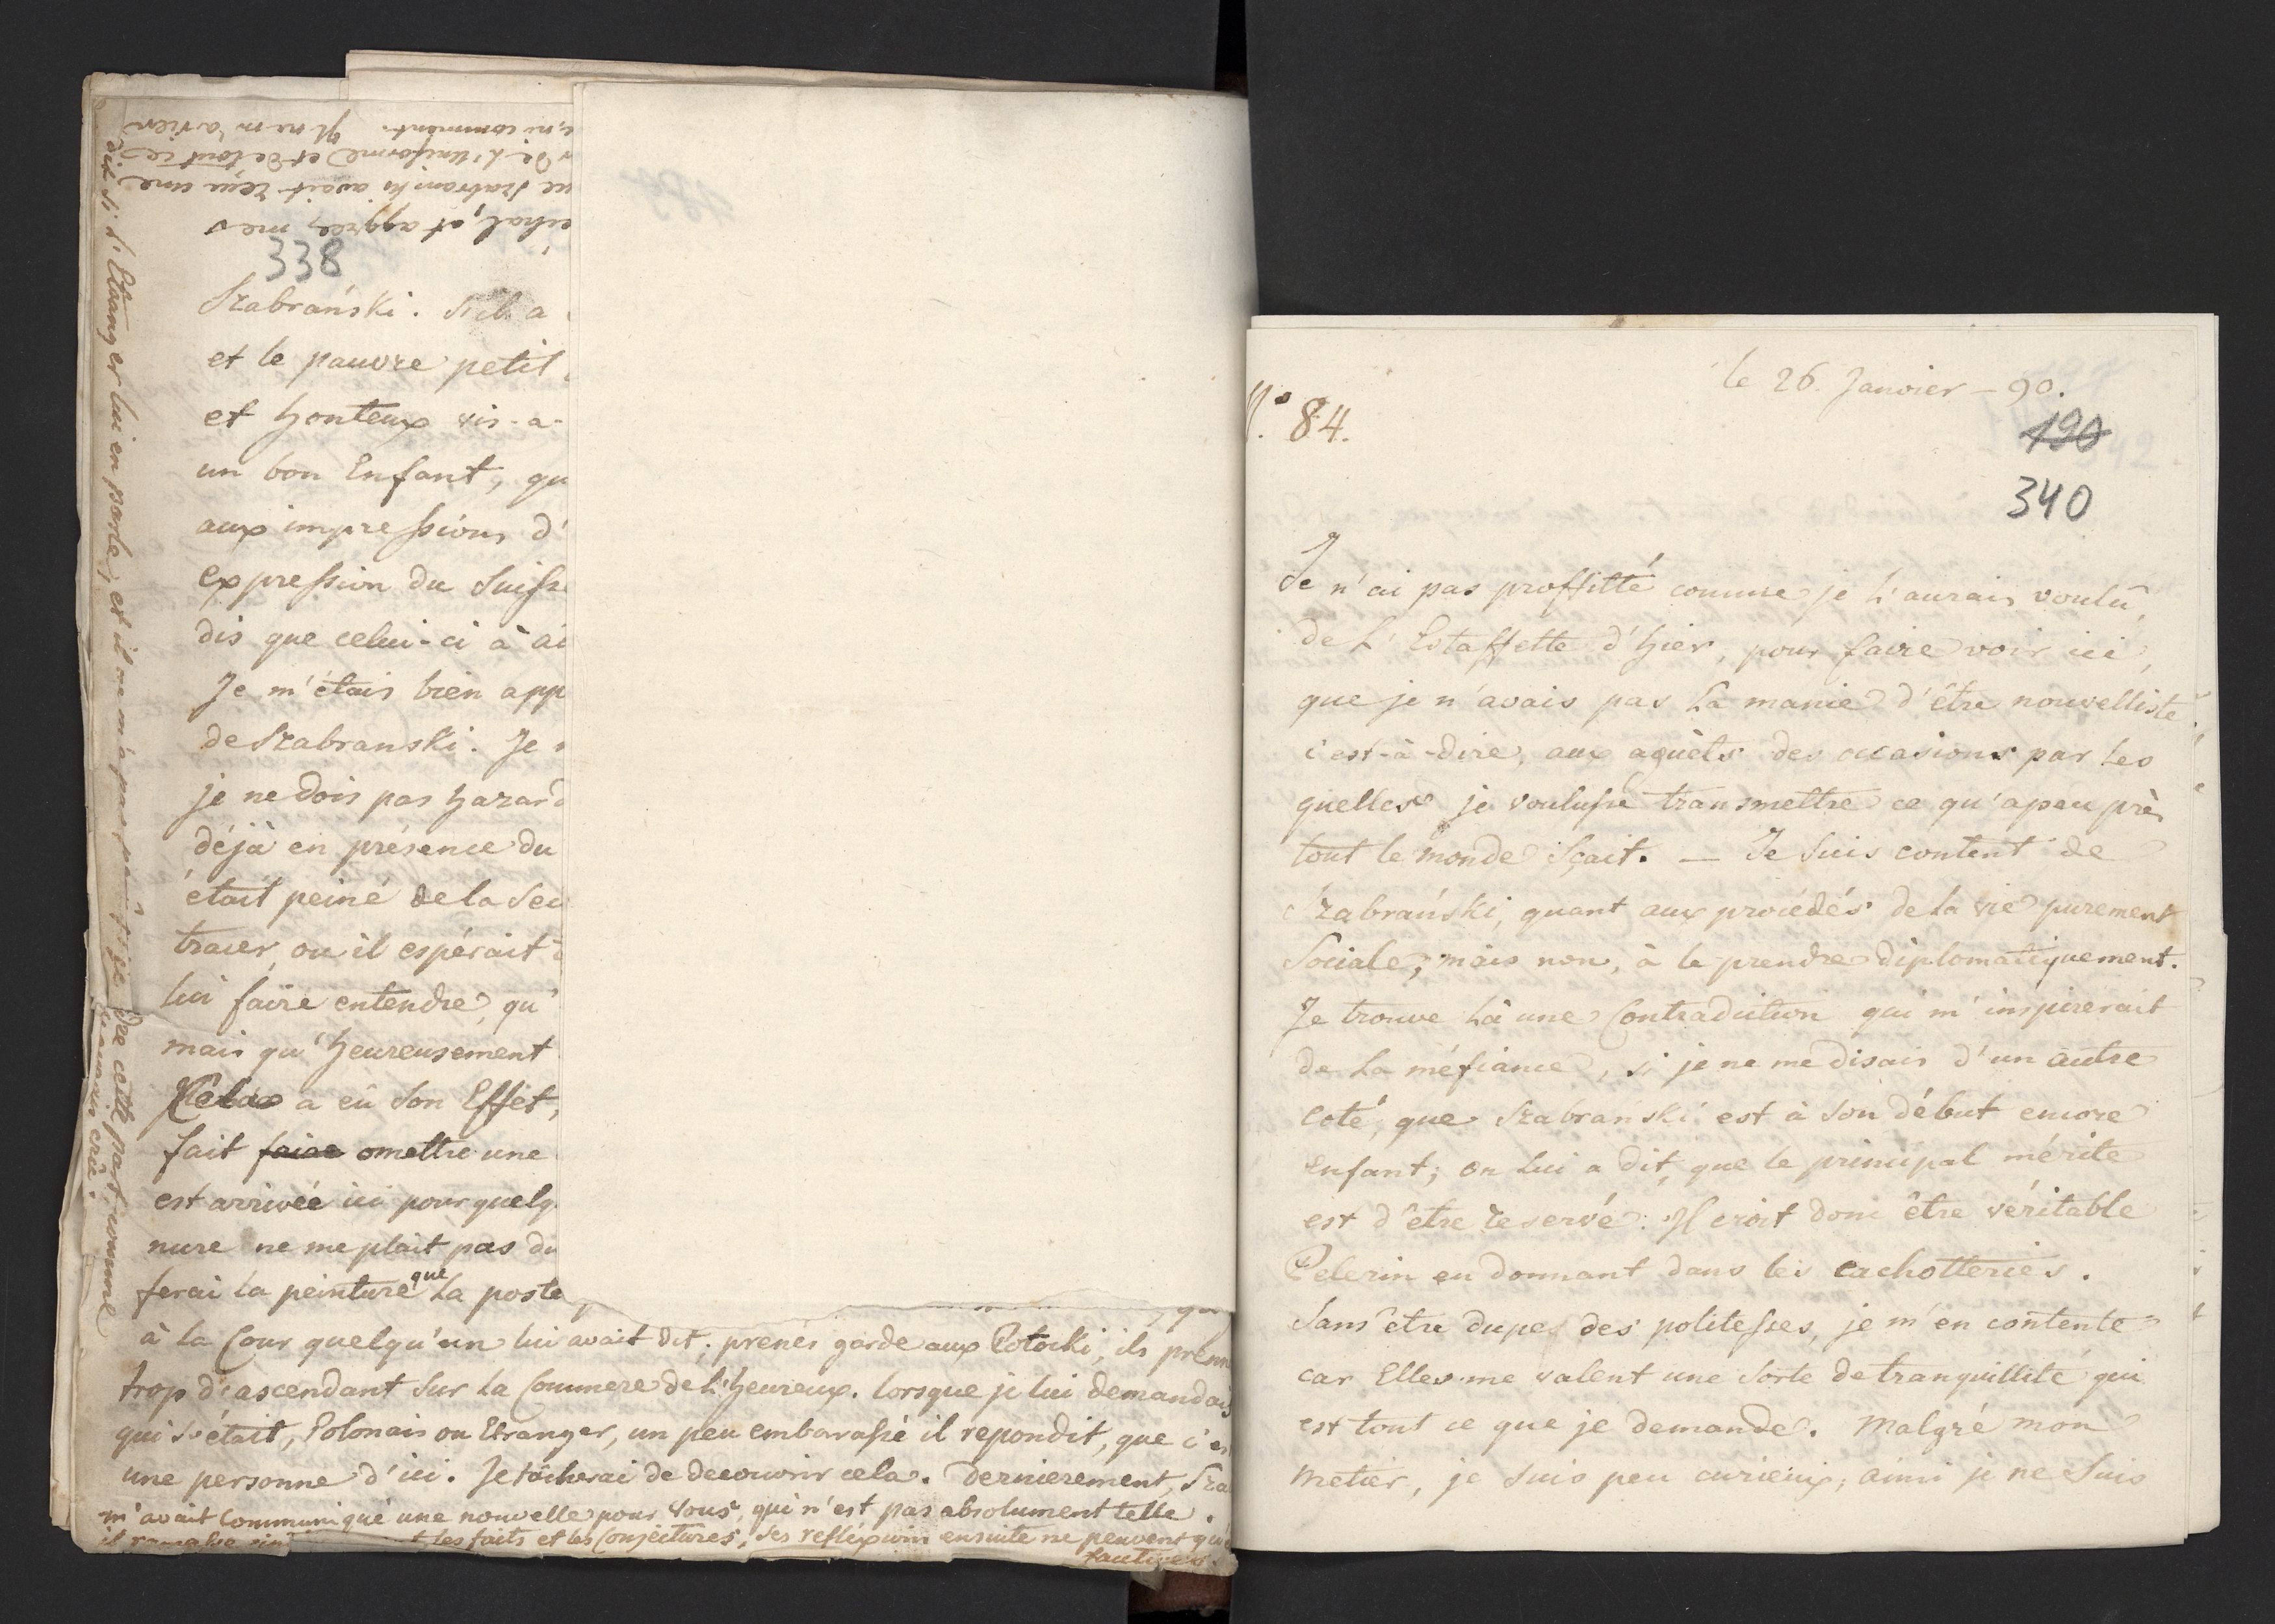 338
Szabrański. S'il a
et le pauvre petit
et honteux vis-a-
un bon Enfant, qu
aux impressions d'
expression du Suiss
dis que celui-ci à
Je m'étais bien app
de Szabranski. Je
je ne dois pas hazard
déjà en présence du
était peiné de la
tracer, ou il espérait
lui faire entendre, qu'
mais qu'heureusement
Cela a eû son Effet,
fait faire omettre une
est arrivée ici pour quelq
nure ne me plait pas du
ferai la peinture que la poste
à la Cour quelqu'un lui avait dit; prenés garde aux Potocki, ils prenn
trop d'ascendant sur la Commere de l'heureux. lorsque je lui demandais
qui s'était, Polonais ou Etranger, un peu embarassé il repondit, que c'es
une personne d'ici. Je tâcherai de decouvrir cela. Dernierement, Sza
m'avait communiqué une nouvelle pour vous, qui n'est pas absolument telle.
il ramasse les faits et les Conjectures, ses refléxions ensuite ne peuvent qu'
fautives.
dit si l'Etranger lui en parle, et il ne m'a pas de cette part, comme
echal, et aggréez mes
ue Szabrański avait reçu une
de l'Uniforme et de tout ce
ni comment. Il ne m'a rien
le 26. Janvier - 90.
N.° 84.
190
340
Je n'ai pas proffitté comme je l'aurais voulû,
de l'Estaffette d'hier, pour faire voir ici,
que je n'avais pas la manie d'être nouvelliste,
c'est-à-dire, aux aguèts des occasions par les
quelles je voulusse transmettre ce qu'apeu près
tout le monde sçait. — Je suis content de
Szabrański, quant aux procédés de la vie purement
Sociale; mais non, à le prendre diplomatiquement.
Je trouve là une Contradiction qui m'inspirerait
de la méfiance, si je ne me disais d'un autre
coté, que Szabrański est à son début encore
enfant; on lui a dit, que le principal mérite
est d'être reservé. Il croit donc être véritable
Pelerin en donnant dans les cachotteries.
Sans être dupe des politesses, je m'en contente
car Elles me valent une sorte de tranquillité qui
est tout ce que je demande. Malgré mon
metier, je suis peu curieux; ainsi je ne suis